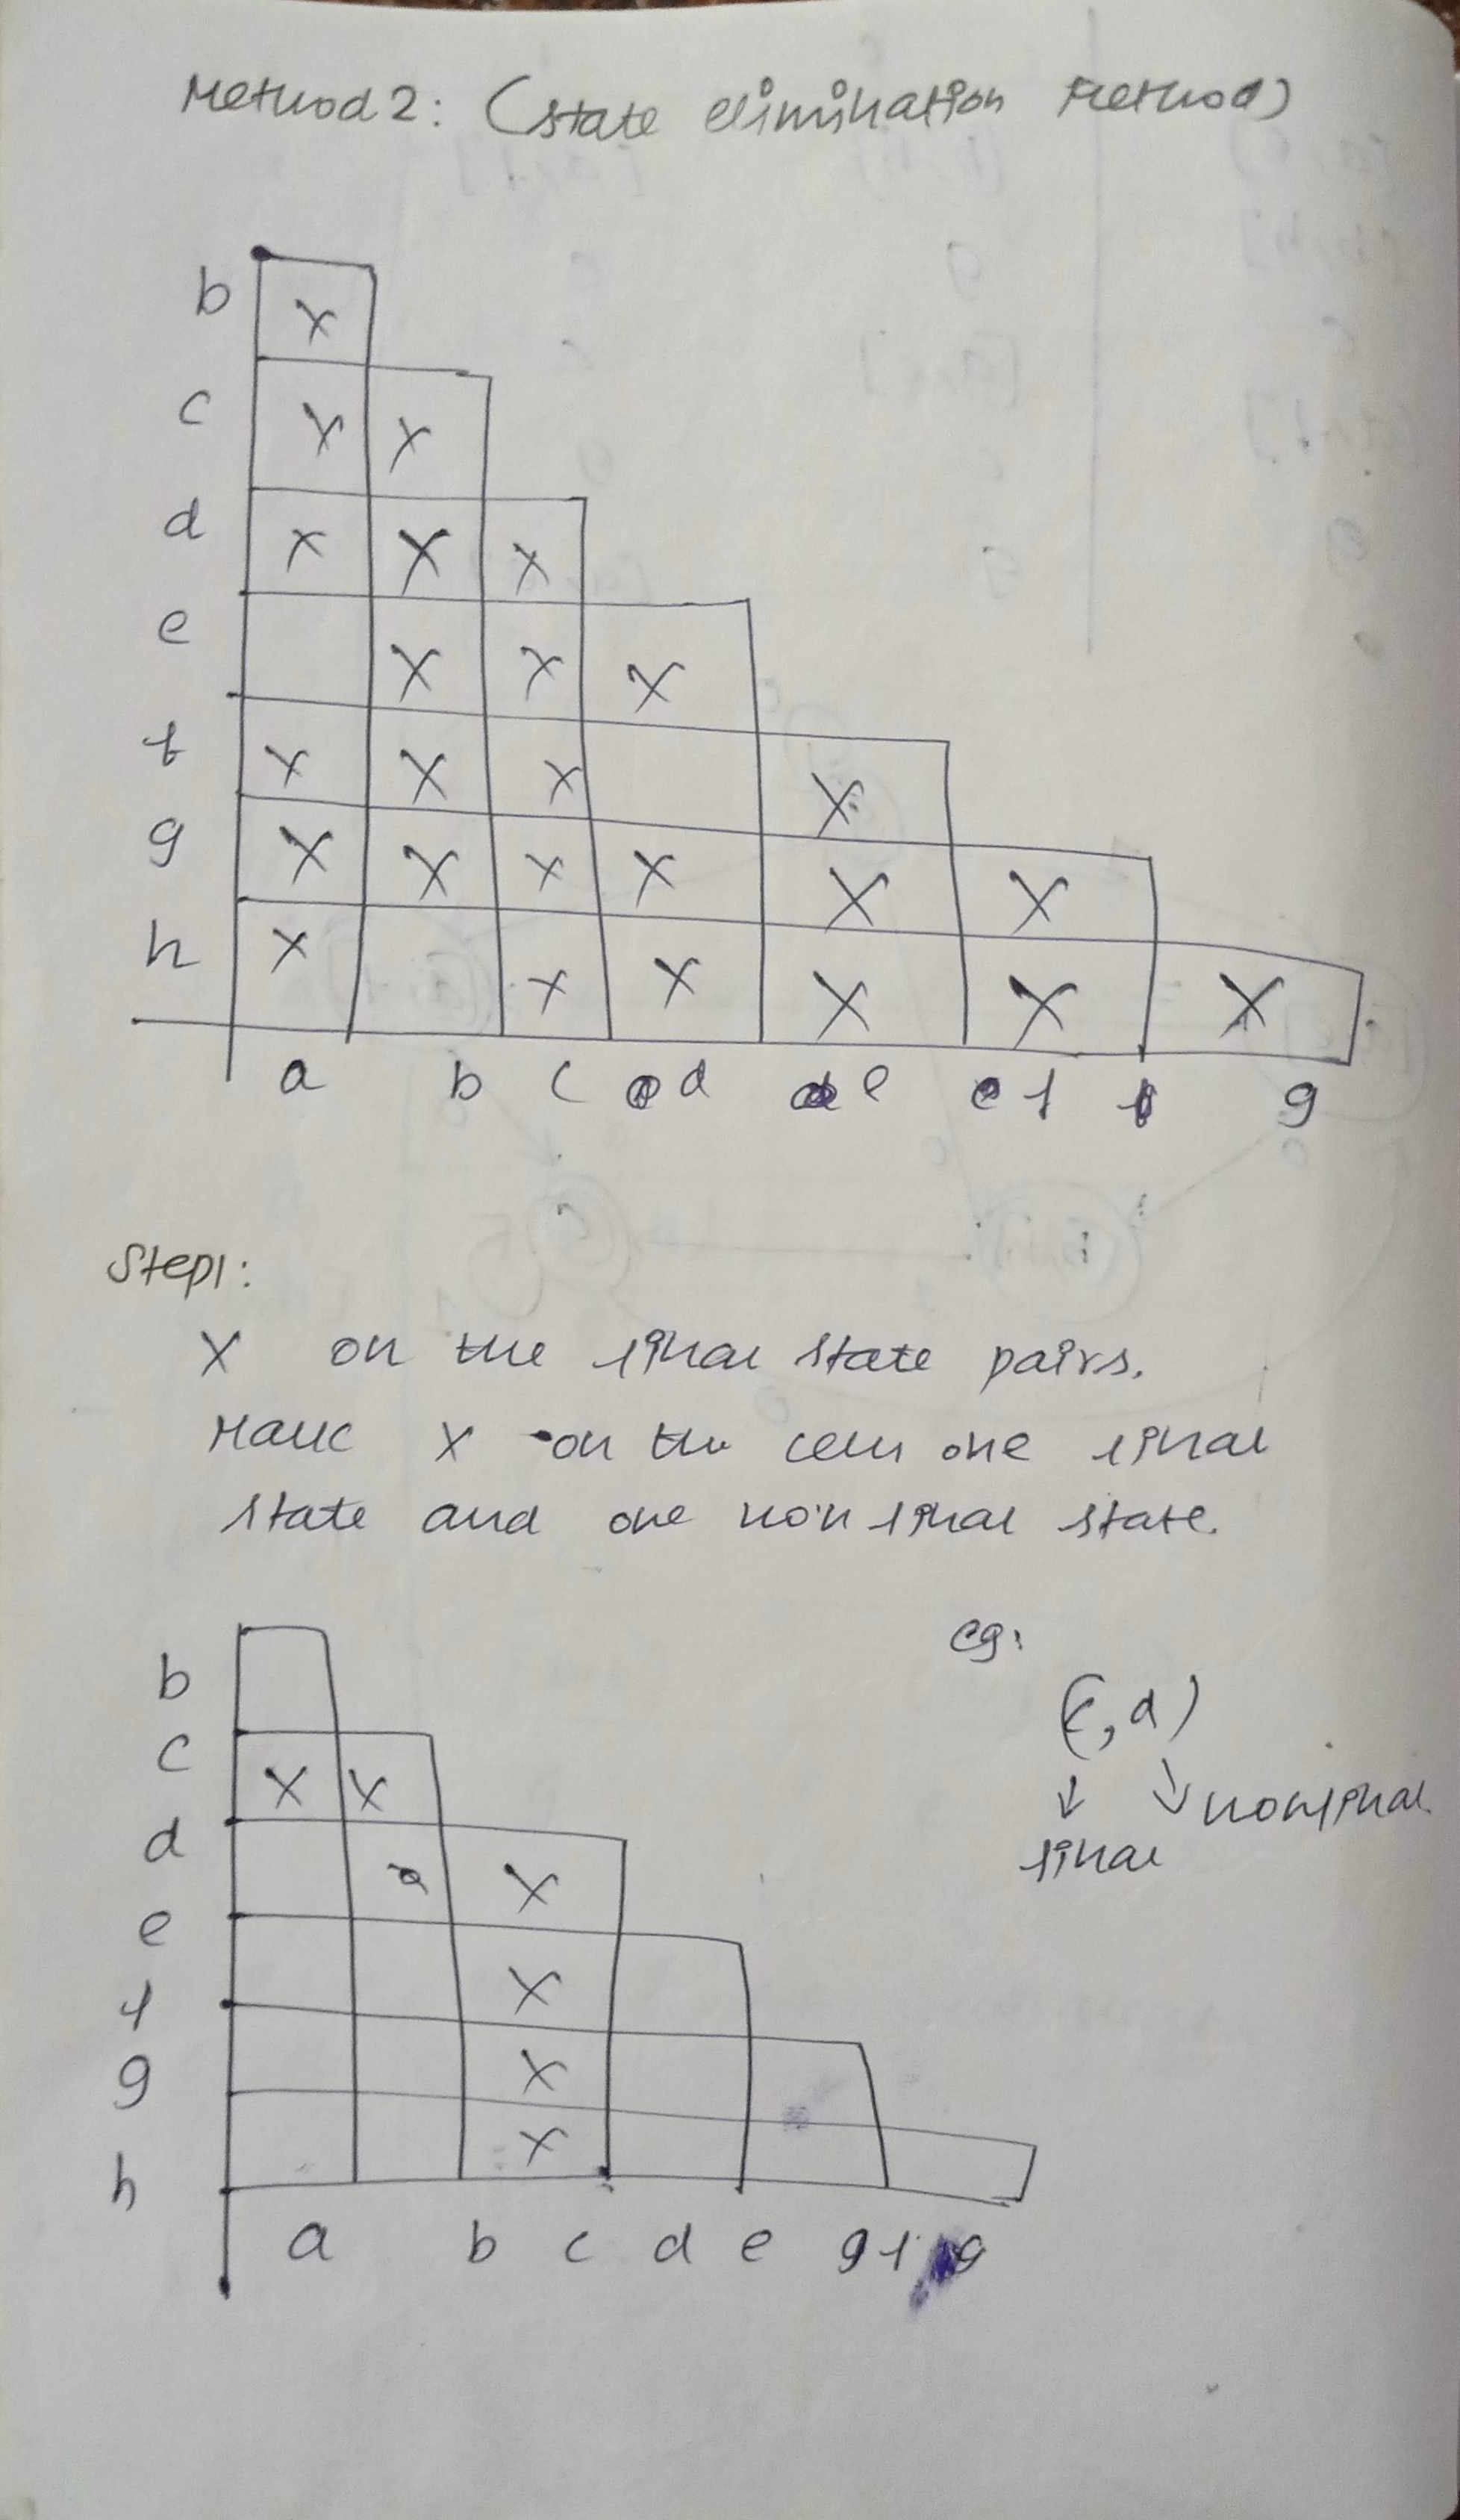 Method 2: (state elimination Method)
b X
c X X
d X X X
e X X X
f X X X X
g X X X X X X
h X X X X X X
a b c d e f g
Step1:
X on the final state pairs.
Mark X on the cell one final
state and one non final state.
b
c X X
d X
e X
f X
g X
h
a b c d e g f g
eg:
(c, d)
↓ ↘ nonfinal
final